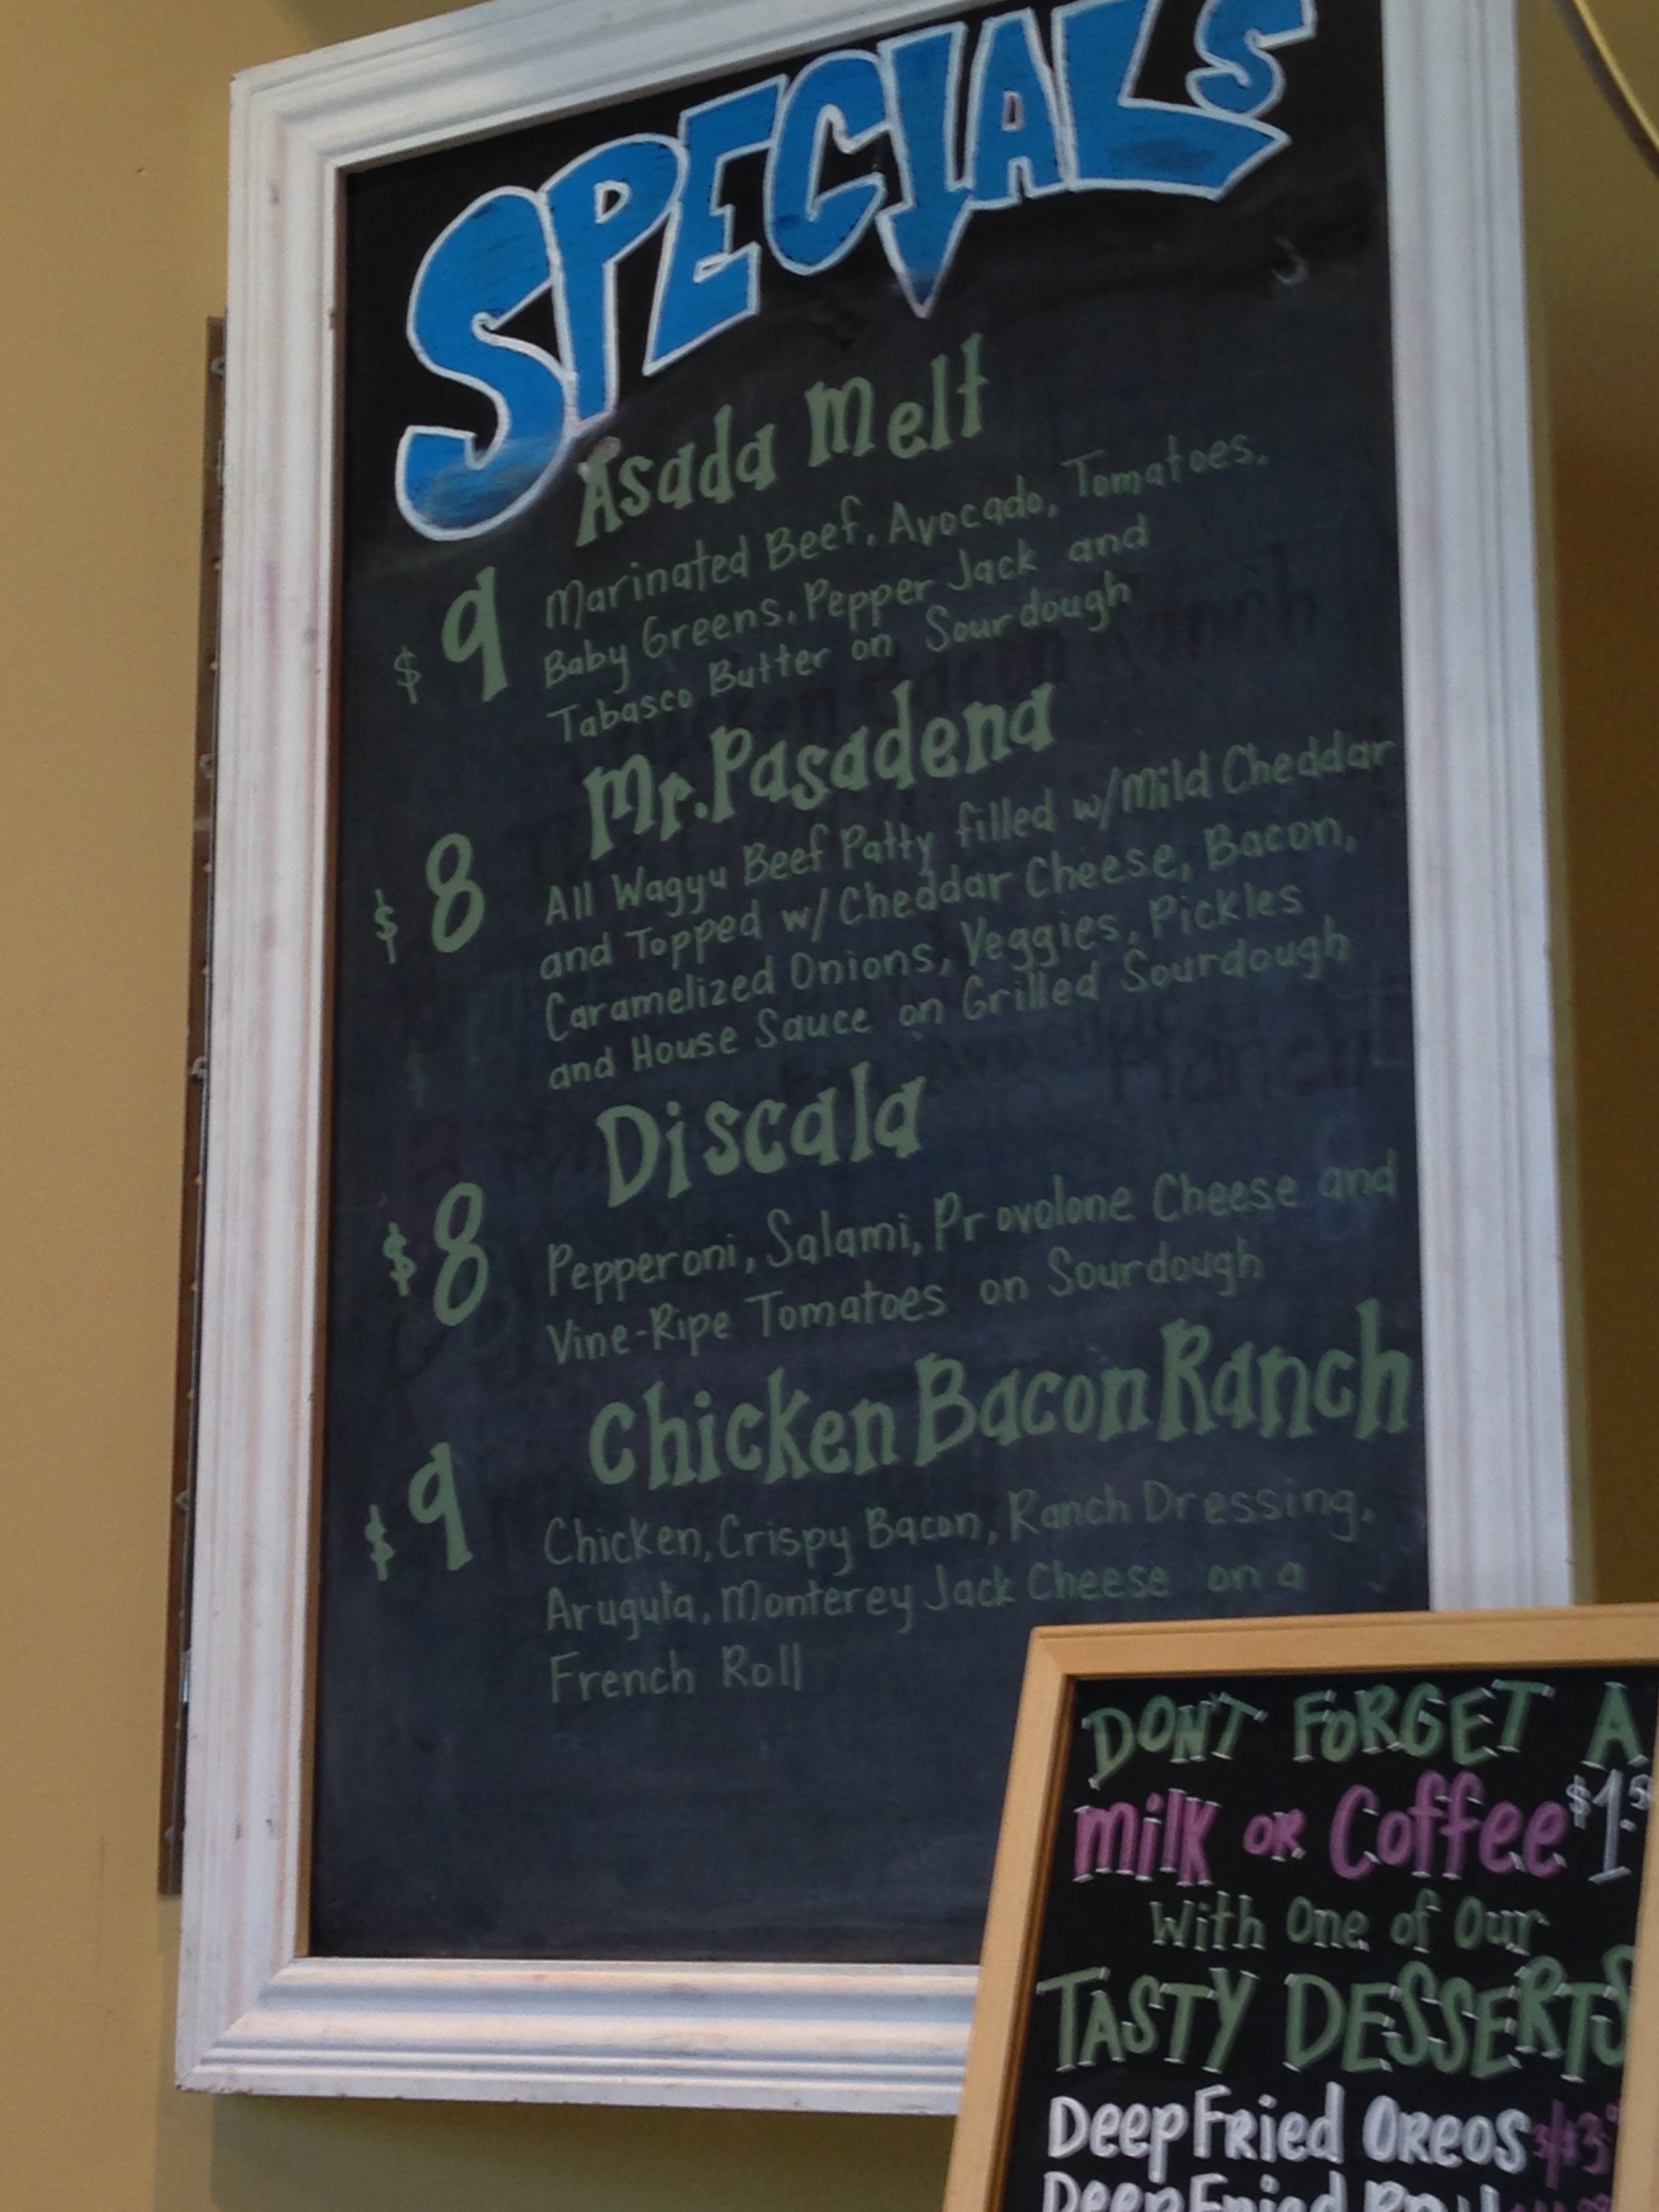 SPECIALS
Asada Melt
$9 Marinated Beef, Avocado, Tomatoes,
Baby Greens, Pepper Jack and
Tabasco Butter on Sourdough
Mr. Pasadena
$8 All Wagyu Beef Patty filled w/Mild Cheddar
and Topped w/Cheddar Cheese, Bacon,
Caramelized Onions, Veggies, Pickles
and House Sauce on Grilled Sourdough
Discala
$8 Pepperoni, Salami, Provolone Cheese and
Vine-Ripe Tomatoes on Sourdough
Chicken Bacon Ranch
$9 Chicken, Crispy Bacon, Ranch Dressing,
Arugula, Monterey Jack Cheese on a
French Roll
DON'T FORGET A
milk OR Coffee
With One of Our
TASTY DESSERTS
Deep Fried OREOS
Deep Fried